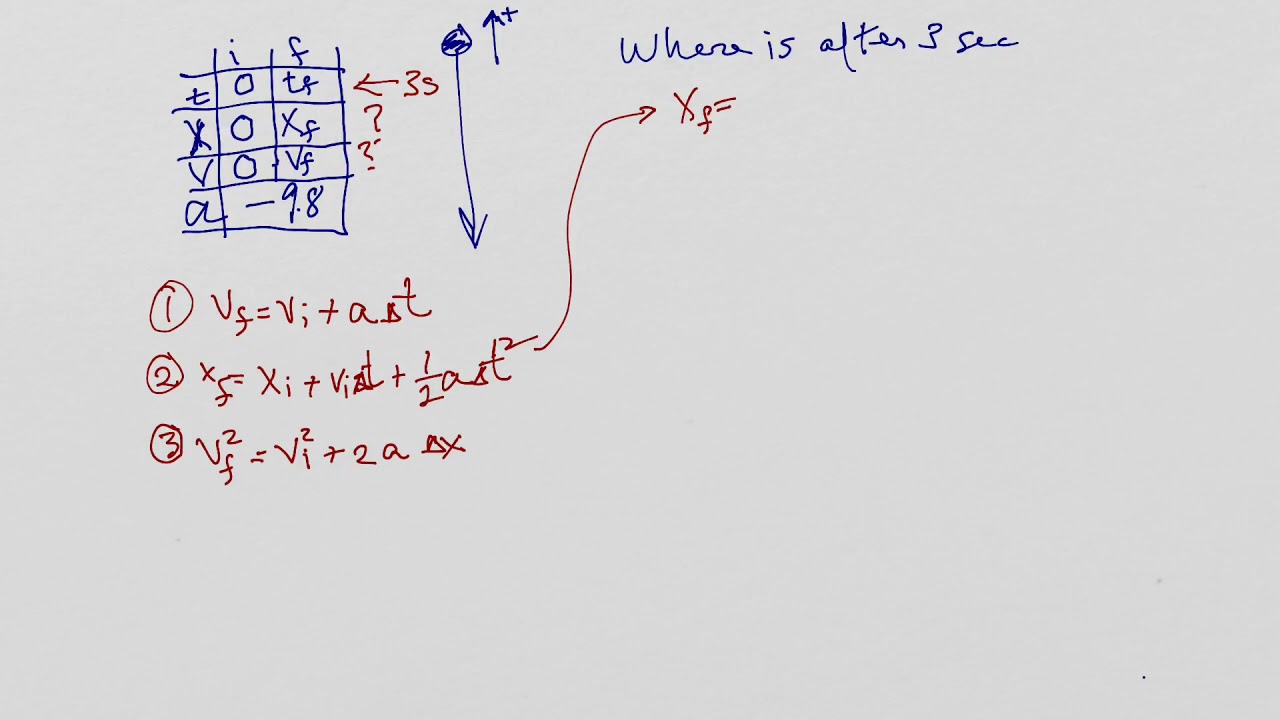 i f
t 0 tf ← 3s
x 0 Xf ?
v 0 Vf ?
a -9.8
↑+
Where is after 3 sec
Xf=
① Vf = Vi + a Δt
② xf = Xi + ViΔt + 1/2 aΔt²
③ Vf² = Vi² + 2 a Δx